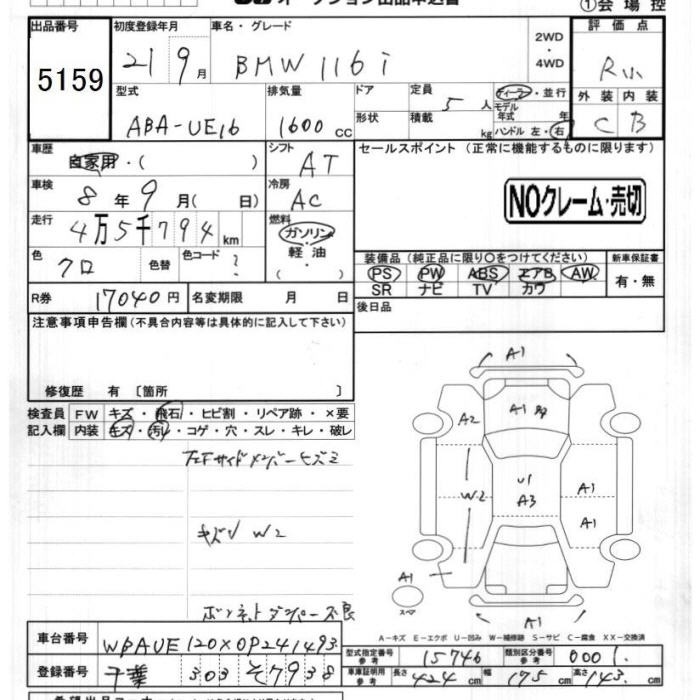 オークション出品申込書
①会場控
出品番号 初度登録年月 車名・グレード 2WD・4WD 評価点
5159 21 9月 BMW 116i R
型式 排気量 ドア 定員 5人 ディーラー・並行 外装 内装
モデル年式 年
ABA-UE16 1600cc 形状 積載 kg ハンドル 左・右 C B
車歴 自家用・( ) シフト AT セールスポイント (正常に機能するものに限ります)
車検 8年9月( 日) 冷房 AC NOクレーム・売切
走行 4万5千794km 燃料 ガソリン・軽油・( )
色 クロ 色替 色コード ?
装備品 (純正品に限り○をつけてください) 新車保証書
PS PW ABS エアB AW 有・無
SR ナビ TV カワ
R券 17040円 名変期限 月 日 後日品
注意事項申告欄(不具合内容等は具体的に記入して下さい)
修復歴 有 〔箇所 〕
検査員 FW キズ・飛石・ヒビ割・リペア跡・×要
記入欄 内装 キズ・汚れ・コゲ・穴・スレ・キレ・破レ
左Fサイドメンバーヒズミ
キズ W2
ボンネットダンパー不良
A1
A1
A2
U1
A3
W2
A1
A1
A1
スペア
A1
A-キズ E-エクボ U-凹み W-補修跡 S-サビ C-腐食 XX-交換済
車台番号 WBAUE120X0P241493
型式指定番号 参考 15746 類別区分番号 参考 0001
登録番号 千葉 303 そ7938
車庫証明用 参考 長さ 424cm 幅 175cm 高さ 143cm